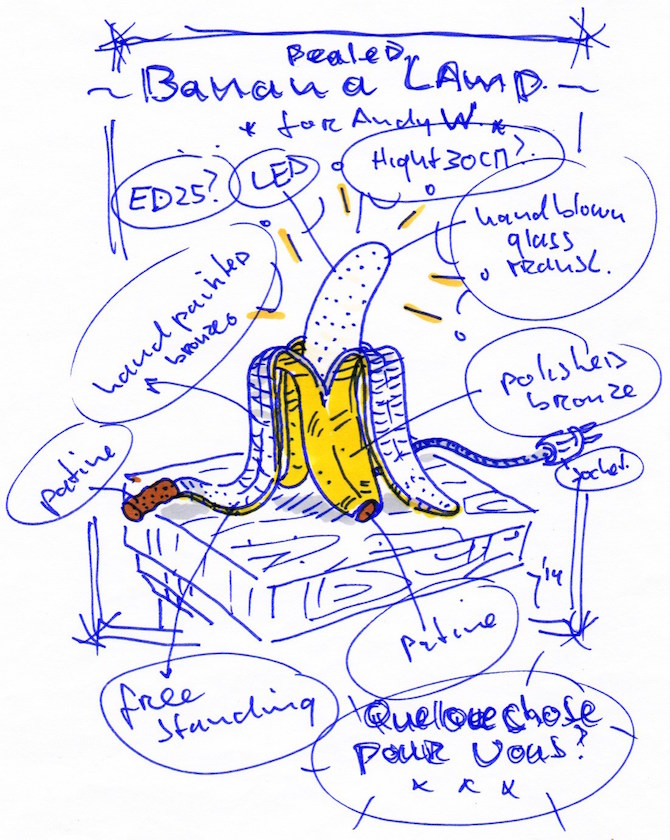 Pealed
~ Banana LAMP. ~
* for Andy W. *
ED25?
LED
Hight 30cm?
handblown
glass
hand painted
bronze
polished
bronze
patine
socket
'14
patine
free
standing
Quelque chose
pour vous?
x x x